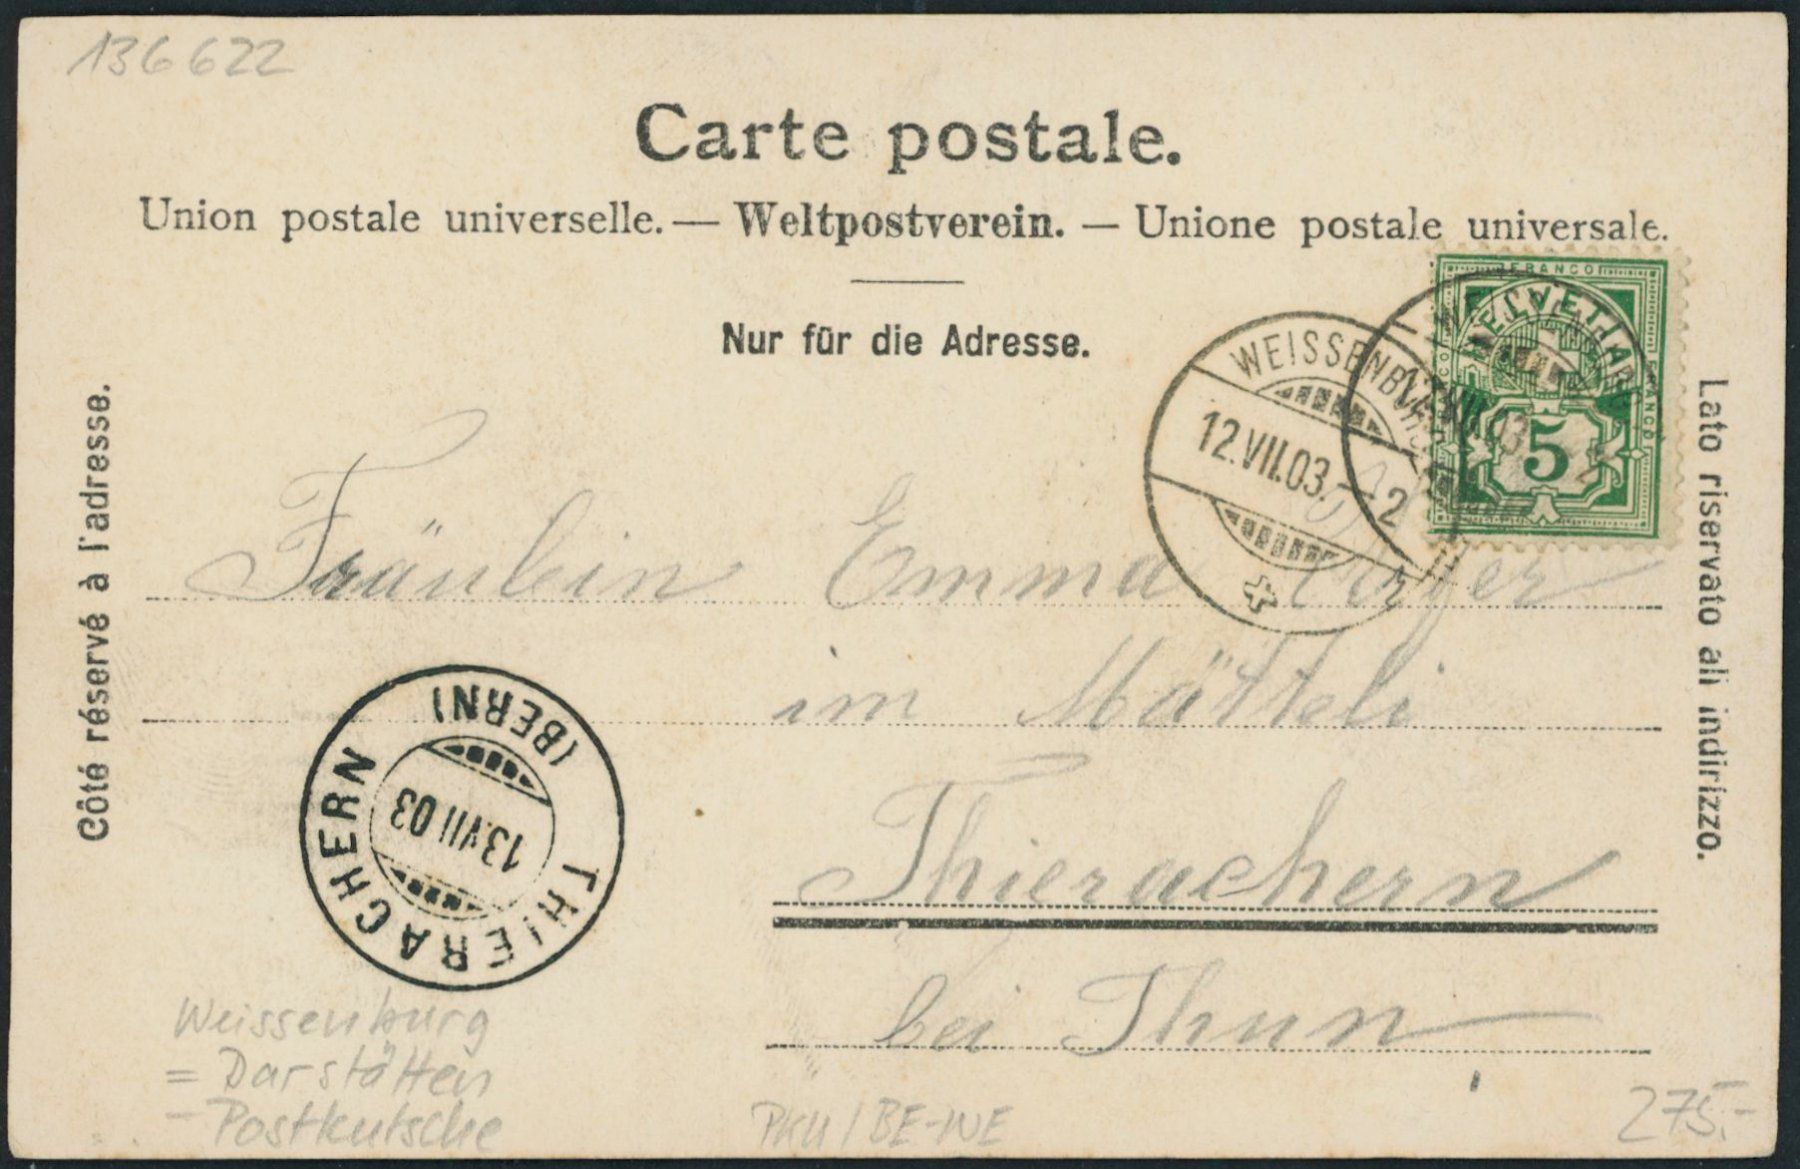 136622
Carte postale.
Union postale universelle. — Weltpostverein. — Unione postale universale.
Nur für die Adresse.
Côté réservé à l'adresse.
Lato riservato ali indirizzo.
FRANCO
HELVETIA
FRANCO
5
WEISSENBURG
12.VII.03.–2
12.VII.03
Fräulein Emma
im Mätteli
Thierachern
bei Thun
THIERACHERN
(BERN)
13.VII.03
Weissenburg
= Darstätten
– Postkutsche
PKU / BE-WE
275.-